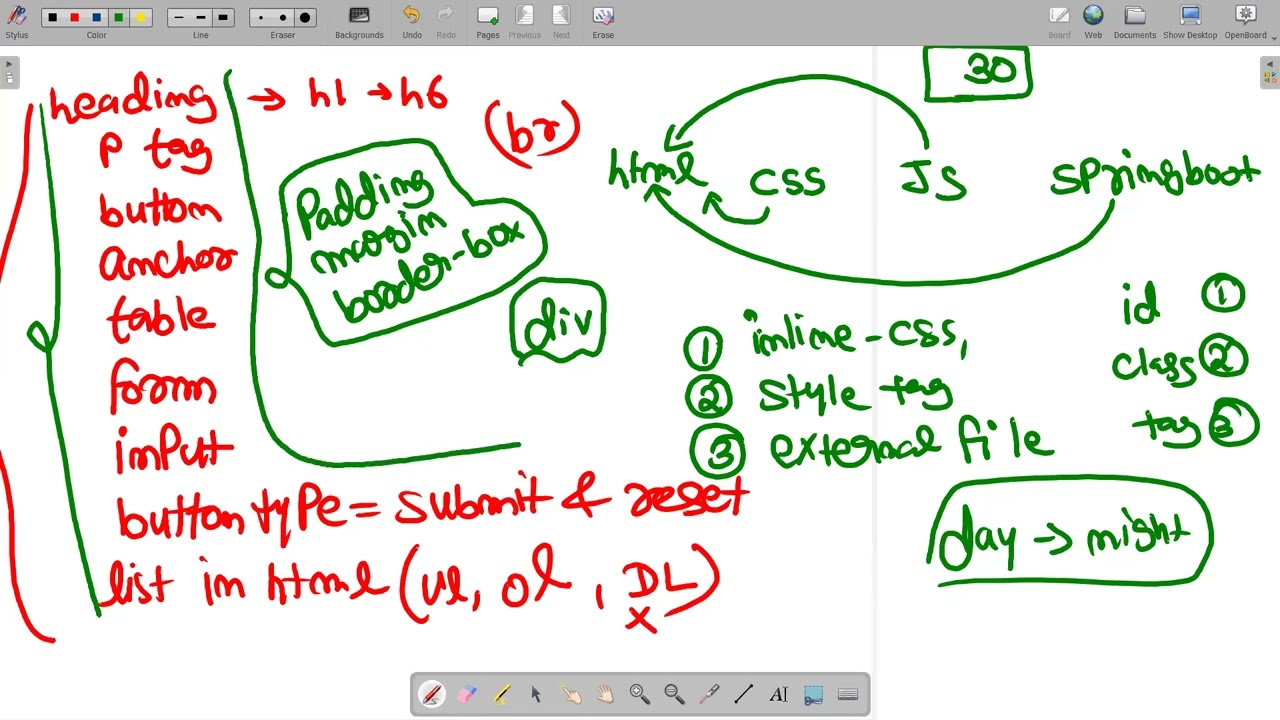 Stylus
Color
Line
Eraser
Backgrounds
Undo
Redo
Pages
Previous
Next
Erase
Board
Web
Documents
Show Desktop
OpenBoard
heading → h1 → h6
P tag
button
anchor
table
form
input
button type = submit & reset
list in html (ul, ol, DL)
X
(br)
Padding
margin
boader-box
div
30
html
css
JS
springboot
① inline-css,
② style tag
③ external file
id ①
class ②
tag ③
day → night
AI